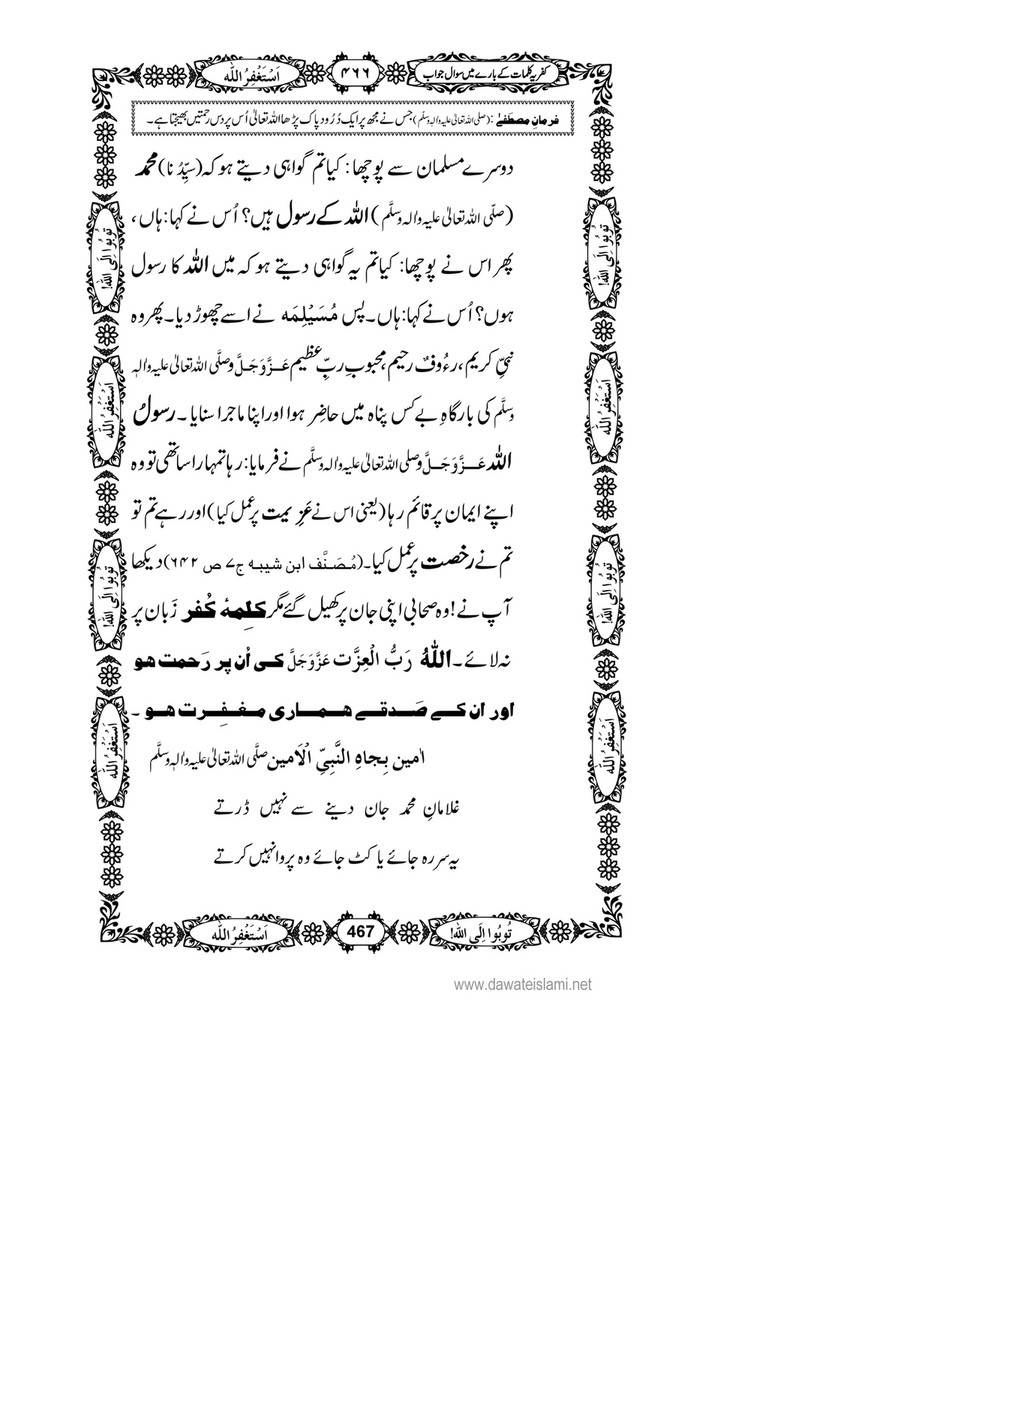 کفریہ کلمات کے بارے میں سوال جواب
۴۶۶
اَسْتَغْفِرُ اللّٰه
فرمانِ مصطفٰے : (صلی اللہ تعالیٰ علیہ والہٖ وسلّم) جس نے مجھ پر ایک دُرُود پاک پڑھا اللہ تعالیٰ اُس پر دس رحمتیں بھیجتا ہے۔
دوسرے مسلمان سے پوچھا: کیا تم گواہی دیتے ہو کہ (سیِّدُ نا) محمد
(صلَّی اللہ تعالیٰ علیہ والہٖ وسلَّم) اللہ کے رسول ہیں؟ اُس نے کہا: ہاں،
پھر اس نے پوچھا: کیا تم یہ گواہی دیتے ہو کہ میں اللہ کا رسول
ہوں؟ اُس نے کہا: ہاں۔ پس مُسَیْلِمَہ نے اسے چھوڑ دیا۔ پھر وہ
نبیِّ کریم، رءُوفٌ رحیم، محبوبِ ربِّ عظیم عَزَّوَجَلَّ وصلَّی اللہ تعالیٰ علیہ والہٖ
وسلَّم کی بارگاہِ بے کس پناہ میں حاضِر ہوا اور اپنا ماجرا سنایا۔ رسولُ
اللہ عَزَّوَجَلَّ وصلی اللہ تعالیٰ علیہ والہٖ وسلَّم نے فرمایا: رہا تمہارا ساتھی تو وہ
اپنے ایمان پر قائم رہا (یعنی اس نے عَزِیمت پر عمل کیا) اور رہے تم تو
تم نے رخصت پر عمل کیا۔ (مُصَنَّف ابن شیبہ ج۷ ص ۶۴۲) دیکھا
آپ نے! وہ صحابی اپنی جان پر کھیل گئے مگر کلِمۂ کُفر زَبان پر
نہ لائے۔ اللّٰهُ رَبُّ الْعِزَّت عَزَّوَجَلَّ کی اُن پر رَحمت ہو
اور ان کے صَدقے ہماری مغفِرت ہو ۔
اٰمین بِجاہِ النَّبِیِّ الْاَمین صلَّی اللہ تعالیٰ علیہ والہٖ وسلَّم
غلامانِ محمد جان دینے سے نہیں ڈرتے
یہ سر رہ جائے یا کٹ جائے وہ پروا نہیں کرتے
تُوبُوا اِلَی اللّٰه!
اَسْتَغْفِرُ اللّٰه
تُوبُوا اِلَی اللّٰه!
اَسْتَغْفِرُ اللّٰه
تُوبُوا اِلَی اللّٰه!
اَسْتَغْفِرُ اللّٰه
تُوبُوا اِلَی اللّٰه!
اَسْتَغْفِرُ اللّٰه
تُوبُوا اِلَی اللّٰه!
467
اَسْتَغْفِرُ اللّٰه
www.dawateislami.net